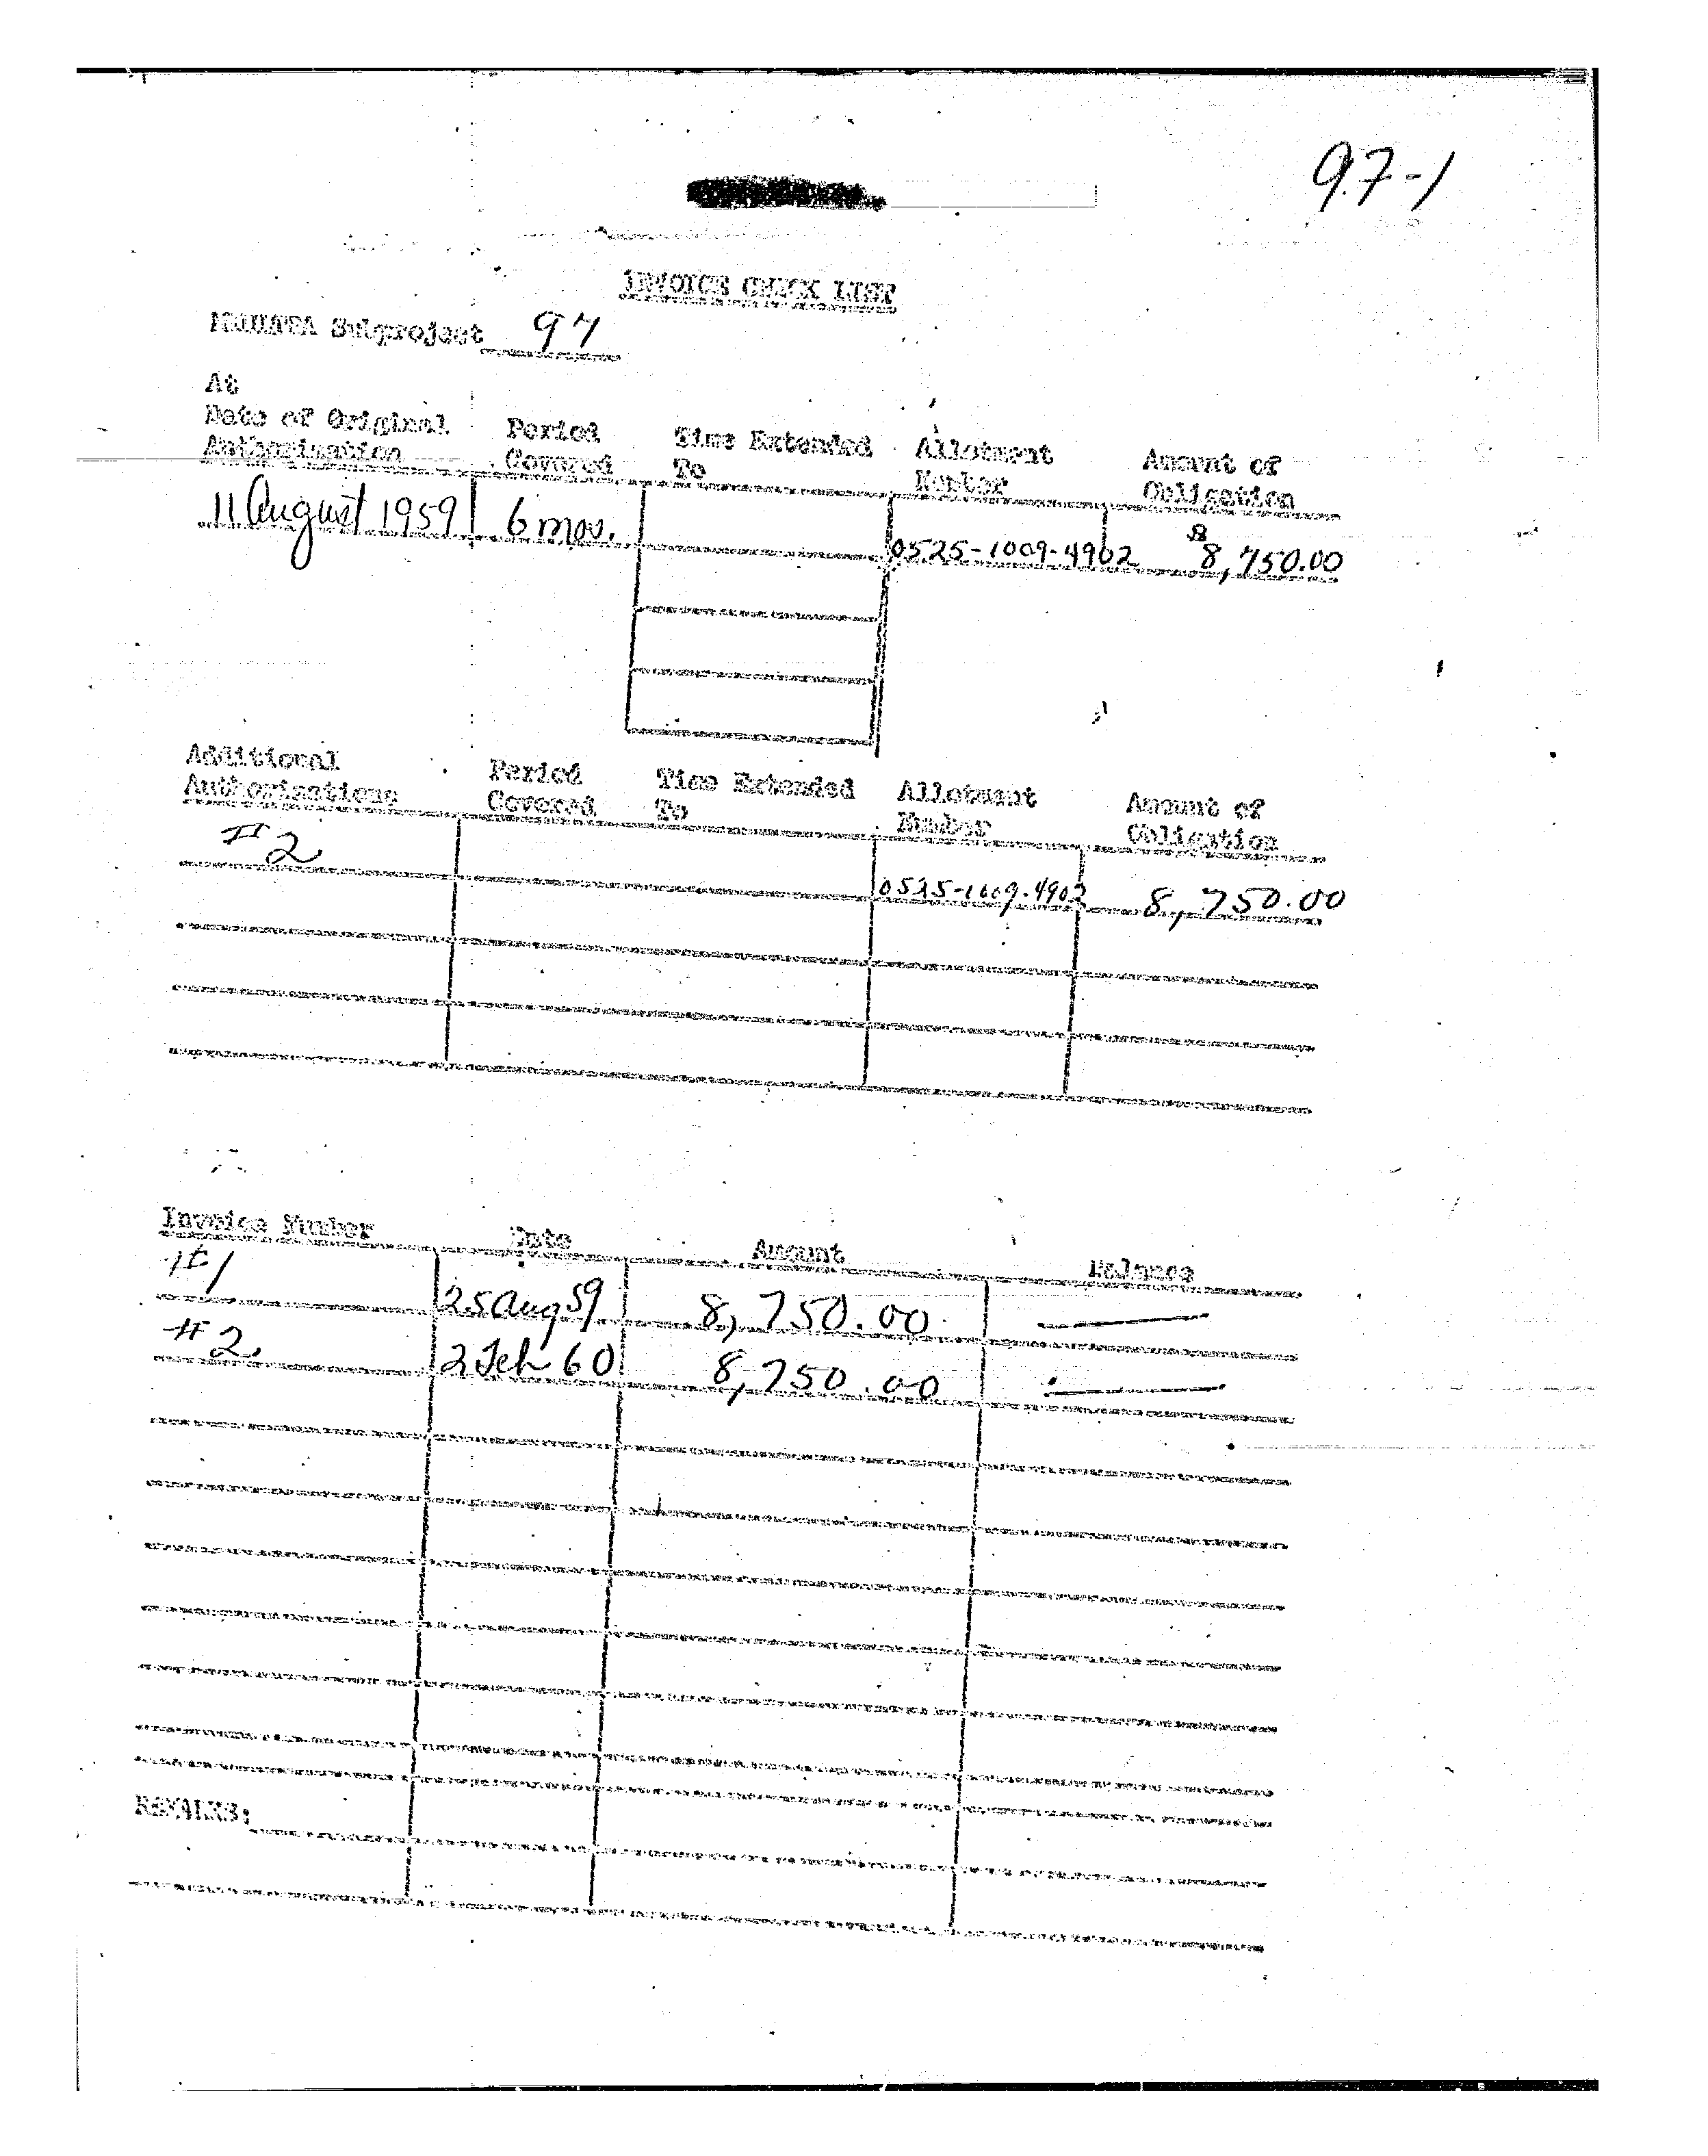 97-1
INVOICE CHECK LIST
MKULTRA Subproject 97
At
Date of Original Authorization | Period Covered | Time Extended To | Allotment Number | Amount of Obligation
11 August 1959 | 6 mos. | 0525-1009-4902 | 8,750.00
Additional Authorizations | Period Covered | Time Extended To | Allotment Number | Amount of Obligation
#2 | 0525-1009-4902 | 8,750.00
Invoice Number | Date | Amount | Balance
#1 | 25 Aug 59 | 8,750.00 | —
#2 | 2 Feb 60 | 8,750.00 | —
REMARKS: